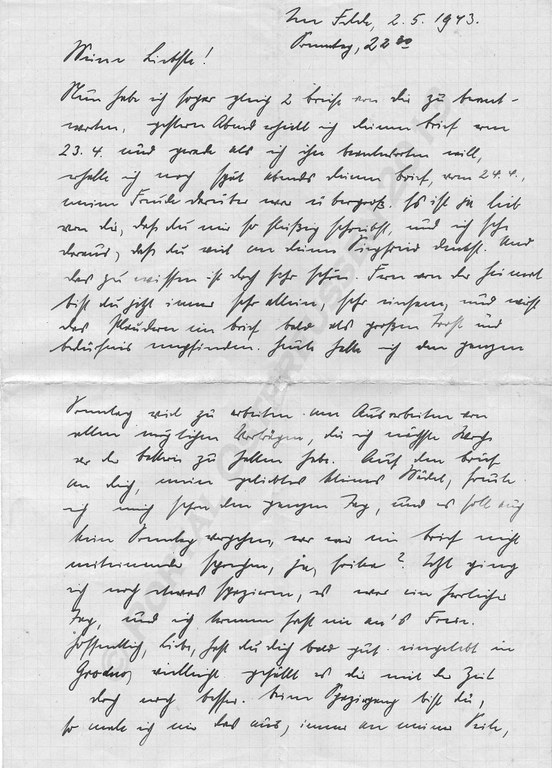 Im Felde, 2.5.1943.
Sonntag, 22⁰⁰
Meine Liebste!
Nun habe ich sogar gleich 2 Briefe von dir zu beant-
worten, gestern Abend erhielt ich deinen Brief vom
23.4. und gerade als ich ihn beantworten will,
erhalte ich noch spät abends deinen Brief, vom 24.4.,
meine Freude darüber war übergroß. Es ist ja lieb
von dir, daß du mir so fleißig schreibst, und ich sehe
daraus, daß du viel an deinen Siegfried denkst. Und
das zu wissen ist doch sehr schön. Fern von der Heimat
bist du jetzt immer sehr allein, sehr einsam, und wirst
das Plaudern im Brief bald als großen Trost und
Bedürfnis empfinden. Heute hatte ich den ganzen
Sonntag viel zu arbeiten am Ausarbeiten von
allen möglichen Vorträgen, die ich nächste Woche
vor der Batterie zu halten habe. Auf den Brief
an dich, mein geliebtes kleines Mädel, freute
ich mich schon den ganzen Tag, und es soll auch
kein Sonntag vergehen, wo wir im Brief nicht
miteinander sprechen, ja, Herta? Jetzt ging
ich noch etwas spazieren, es war ein herrlicher
Tag, und ich komme fast nie an's Freie.
Hoffentlich, Liebe, hast du dich bald gut eingelebt in
Grodno, vielleicht gefällt es dir mit der Zeit
doch noch besser. Beim Spaziergang bist du,
so male ich mir das aus, immer an meiner Seite,